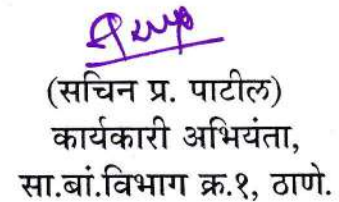 (सचिन प्र. पाटील)
कार्यकारी अभियंता,
सा.बां.विभाग क्र.१, ठाणे.